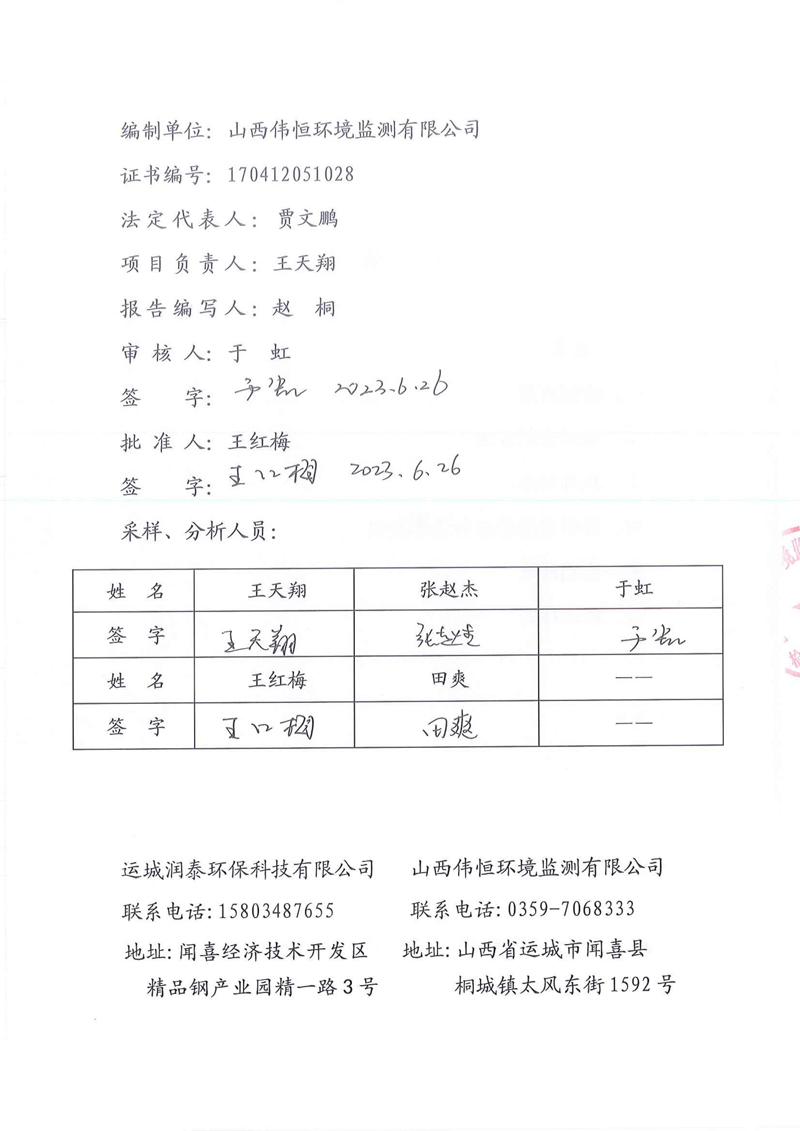 编制单位：山西伟恒环境监测有限公司
证书编号：170412051028
法定代表人：贾文鹏
项目负责人：王天翔
报告编写人：赵 桐
审 核 人：于 虹
签 字：于虹 2023.6.26
批 准 人：王红梅
签 字：王红梅 2023.6.26
采样、分析人员：
姓 名 王天翔 张赵杰 于虹
签 字 王天翔 张赵杰 于虹
姓 名 王红梅 田爽 ——
签 字 王红梅 田爽 ——
运城润泰环保科技有限公司 山西伟恒环境监测有限公司
联系电话：15803487655 联系电话：0359-7068333
地址：闻喜经济技术开发区 地址：山西省运城市闻喜县
精品钢产业园精一路 3 号 桐城镇太风东街 1592 号